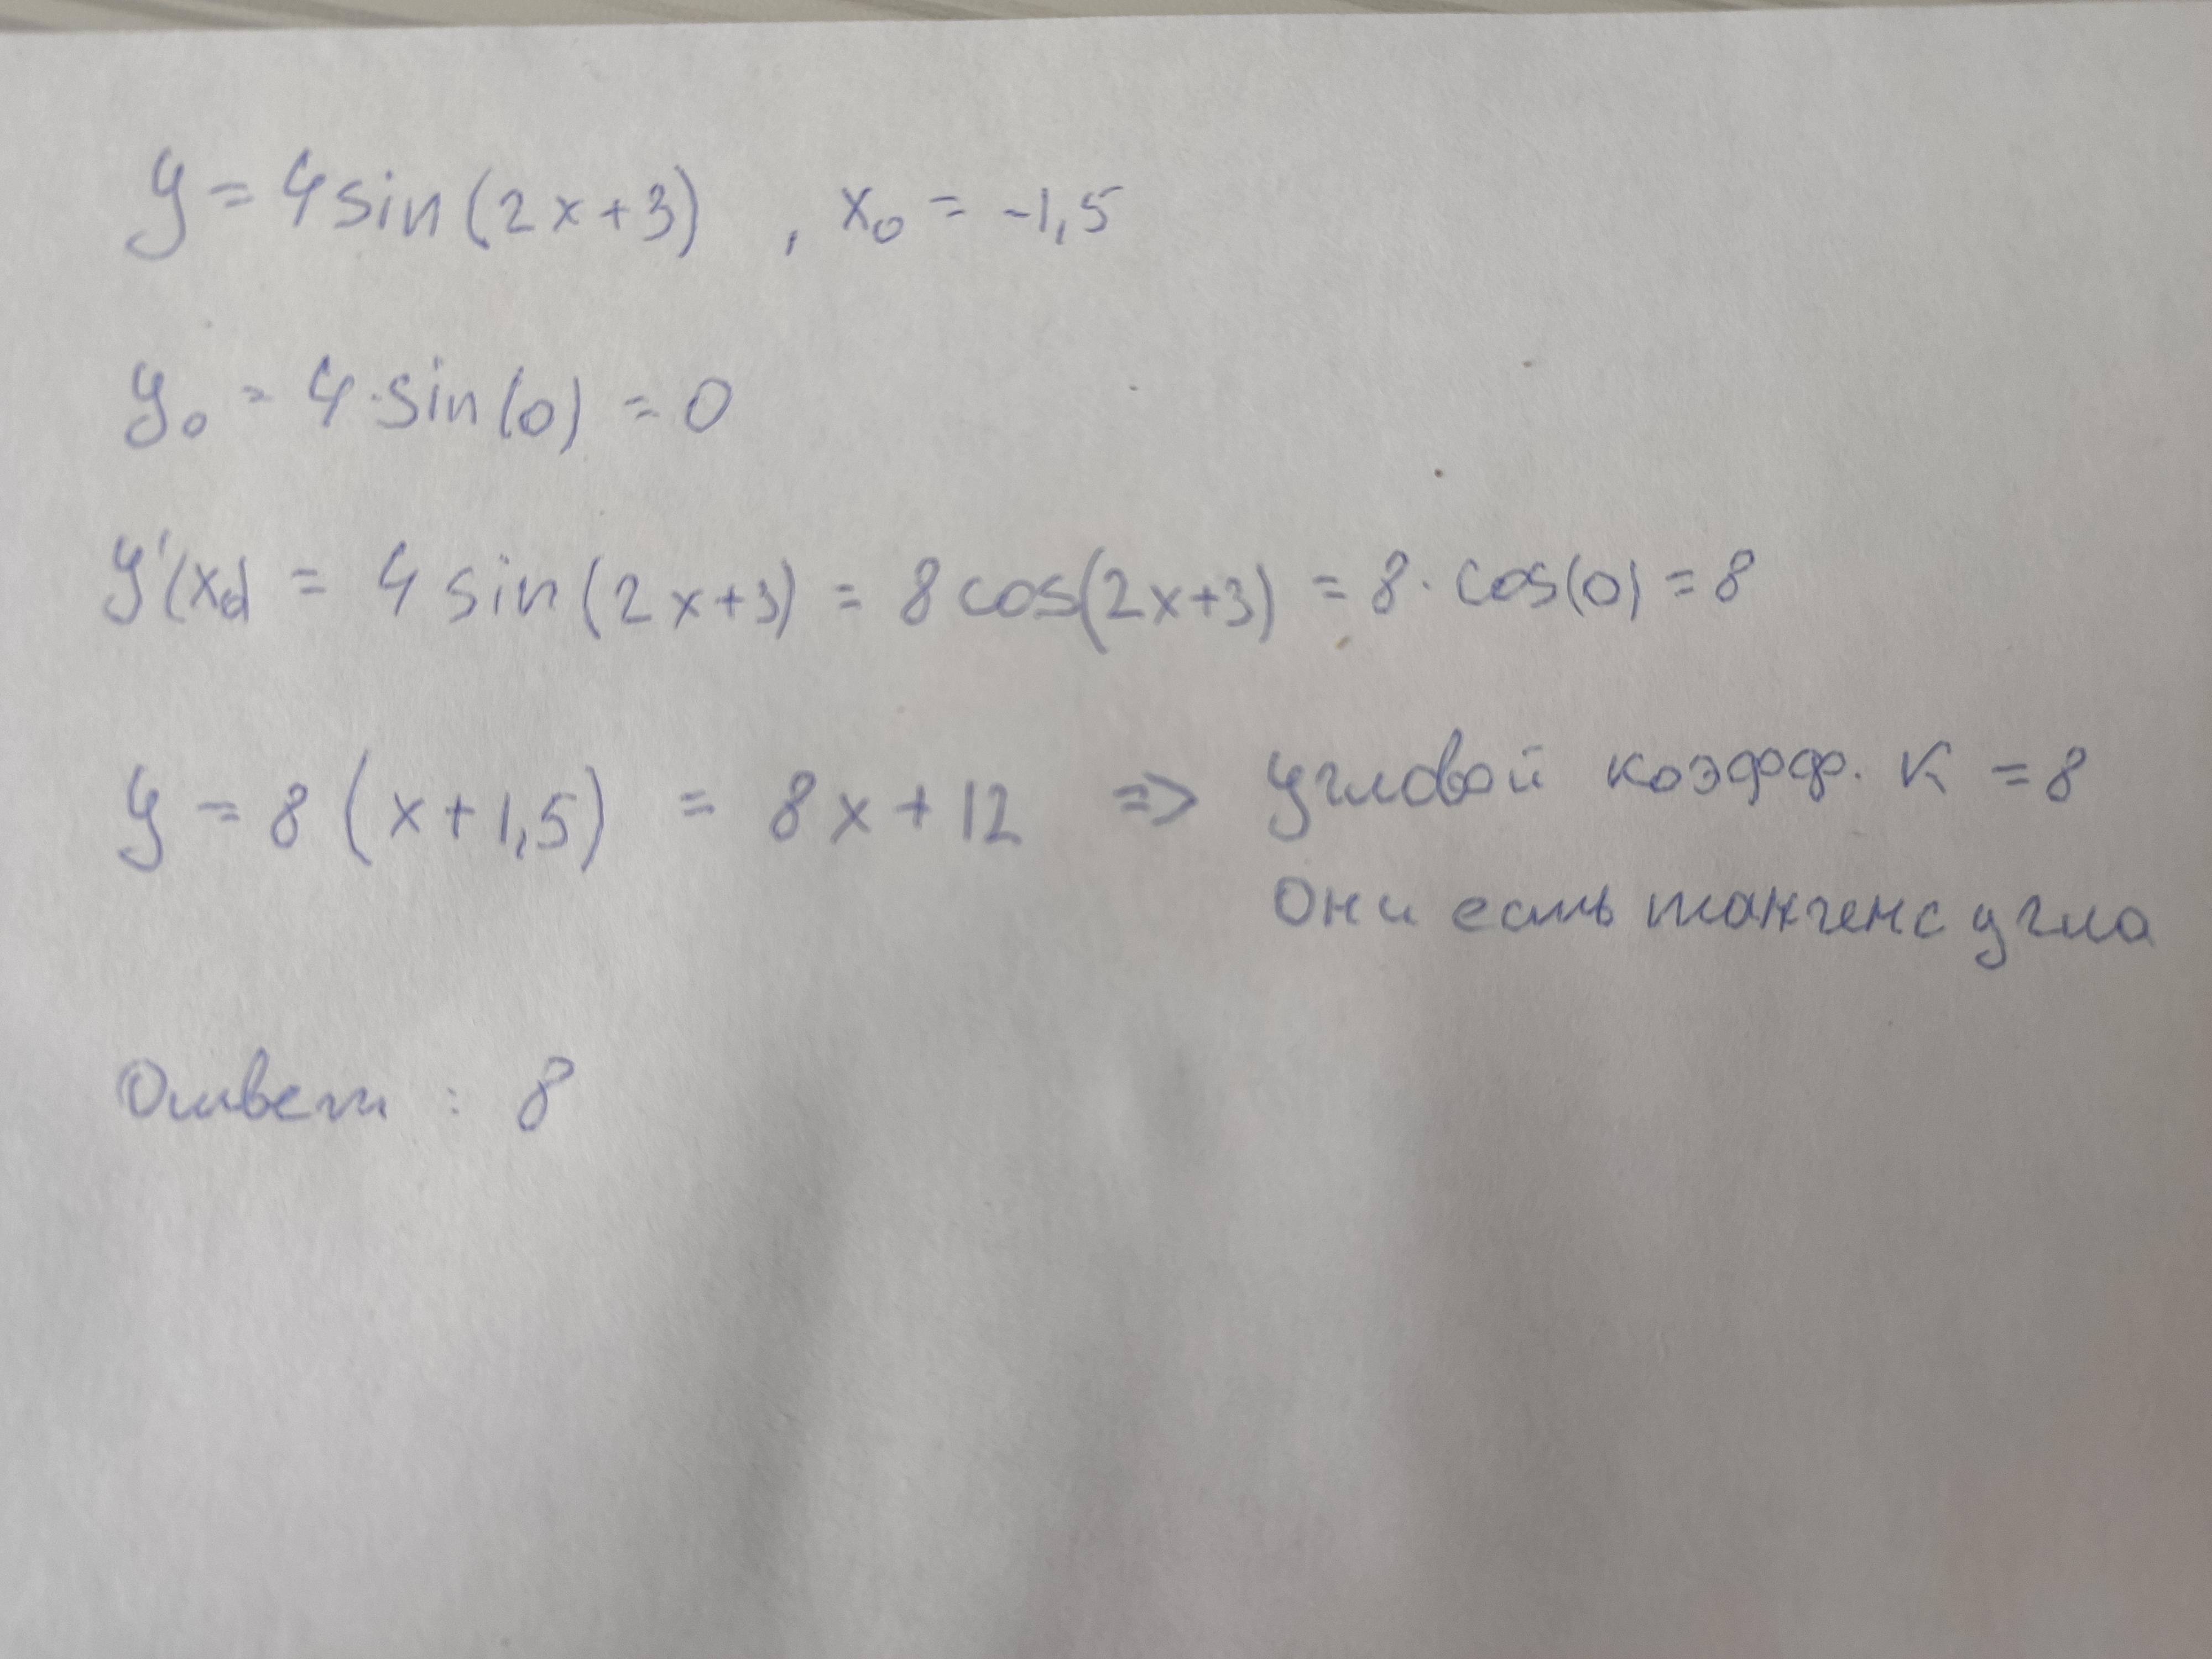 y = 4 sin(2x+3) , x₀ = -1,5
y₀ = 4·sin(0) = 0
y'(x₀) = 4 sin(2x+3) = 8 cos(2x+3) = 8· cos(0) = 8
y = 8 (x+1,5) = 8x+12 => угловой коэфф. К = 8
Он и есть тангенс угла
Ответ : 8